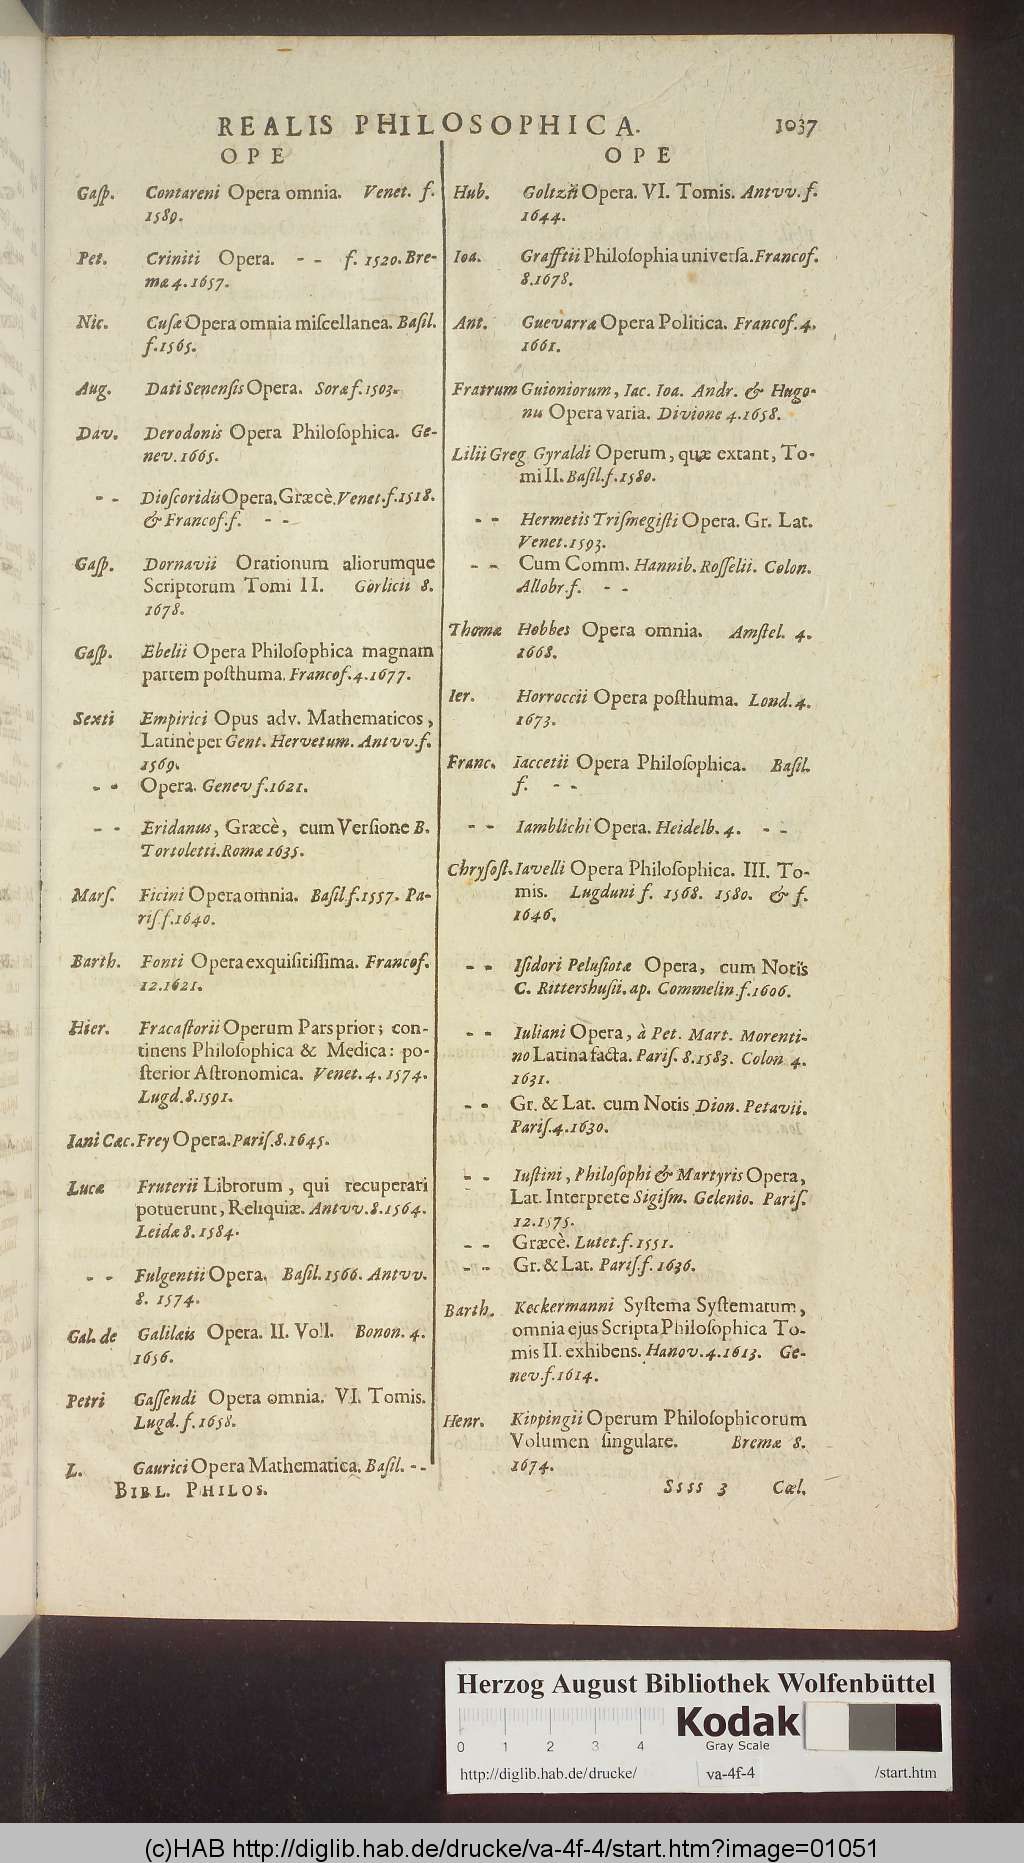 REALIS PHILOSOPHICA. 1037
OPE
Gaſp. Contareni Opera omnia. Venet. f.
1589.
Pet. Criniti Opera. - - f. 1520. Bre-
mæ 4. 1657.
Nic. Cuſæ Opera omnia miſcellanea. Baſil.
f. 1565.
Aug. Dati Senenſis Opera. Soræ f. 1503.
Dav. Derodonis Opera Philoſophica. Ge-
nev. 1665.
- - Dioſcoridis Opera. Græcè. Venet. f. 1518.
& Francof. f. - -
Gaſp. Dornavii Orationum aliorumque
Scriptorum Tomi II. Gorlicii 8.
1678.
Gaſp. Ebelii Opera Philoſophica magnam
partem poſthuma. Francof. 4. 1677.
Sexti Empirici Opus adv. Mathematicos,
Latinè per Gent. Hervetum. Antvv. f.
1569.
- - Opera. Genev f. 1621.
- - Eridanus, Græcè, cum Verſione B.
Tortoletti. Romæ 1635.
Marſ. Ficini Opera omnia. Baſil. f. 1557. Pa-
riſ. f. 1640.
Barth. Fonti Opera exquiſitiſſima. Francof.
12. 1621.
Hier. Fracaſtorii Operum Pars prior; con-
tinens Philoſophica & Medica: po-
ſterior Aſtronomica. Venet. 4. 1574.
Lugd. 8. 1591.
Iani Cæc. Frey Opera. Pariſ. 8. 1645.
Lucæ Fruterii Librorum, qui recuperari
potuerunt, Reliquiæ. Antvv. 8. 1564.
Leidæ 8. 1584.
- - Fulgentii Opera. Baſil. 1566. Antvv.
8. 1574.
Gal. de Galilæis Opera. II. Voll. Bonon. 4.
1656.
Petri Gaſſendi Opera omnia. VI. Tomis.
Lugd. f. 1658.
L. Gaurici Opera Mathematica. Baſil. - -
BIBL. PHILOS.
OPE
Hub. Goltzii Opera. VI. Tomis. Antvv. f.
1644.
Ioa. Grafftii Philoſophia univerſa. Francof.
8. 1678.
Ant. Guevarræ Opera Politica. Francof. 4.
1661.
Fratrum Guioniorum, Iac. Ioa. Andr. & Hugo-
nu Opera varia. Divione 4. 1658.
Lilii Greg Gyraldi Operum, quæ extant, To-
mi II. Baſil. f. 1580.
- - Hermetis Triſmegiſti Opera. Gr. Lat.
Venet. 1593.
- - Cum Comm. Hannib. Roſſelii. Colon.
Allobr. f. - -
Thomæ Hobbes Opera omnia. Amſtel. 4.
1668.
Ier. Horroccii Opera poſthuma. Lond. 4.
1673.
Franc. Iaccetii Opera Philoſophica. Baſil.
f. - -
- - Iamblichi Opera. Heidelb. 4. - -
Chryſoſt. Iavelli Opera Philoſophica. III. To-
mis. Lugduni f. 1568. 1580. & f.
1646.
- - Iſidori Peluſiotæ Opera, cum Notis
C. Rittershuſii. ap. Commelin. f. 1606.
- - Iuliani Opera, à Pet. Mart. Morenti-
no Latina facta. Pariſ. 8. 1583. Colon 4.
1631.
- - Gr. & Lat. cum Notis Dion. Petavii.
Pariſ. 4. 1630.
- - Iuſtini, Philoſophi & Martyris Opera,
Lat. Interprete Sigiſm. Gelenio. Pariſ.
12. 1575.
- - Græcè. Lutet. f. 1551.
- - Gr. & Lat. Pariſ. f. 1636.
Barth. Keckermanni Syſtema Syſtematum,
omnia ejus Scripta Philoſophica To-
mis II. exhibens. Hanov. 4. 1613. Ge-
nev. f. 1614.
Henr. Kippingii Operum Philoſophicorum
Volumen ſingulare. Bremæ 8.
1674.
Ssss 3 Cæl.
Herzog August Bibliothek Wolfenbüttel
0 1 2 3 4
Kodak
Gray Scale
http://diglib.hab.de/drucke/ va-4f-4 /start.htm
(c)HAB http://diglib.hab.de/drucke/va-4f-4/start.htm?image=01051